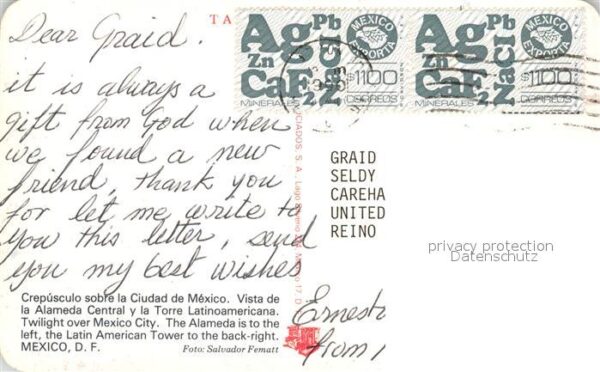 Dear Graid.
it is always a
gift from God when
we found a new
friend, thank you
for let me write to
you this letter, send
you my best wishes
Ernesto
from
TA
Ag Pb
Zn NaCl
CaF2
MEXICO EXPORTA
$1100
MINERALES CORREOS
Ag Pb
Zn NaCl
CaF2
MEXICO EXPORTA
$1100
MINERALES CORREOS
GRAID
SELDY
CAREHA
UNITED
REINO
privacy protection
Datenschutz
Crepúsculo sobre la Ciudad de México. Vista de
la Alameda Central y la Torre Latinoamericana.
Twilight over Mexico City. The Alameda is to the
left, the Latin American Tower to the back-right.
MEXICO, D. F. Foto: Salvador Fematt